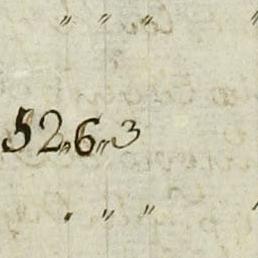 " " " "
52"6"3
. " " "